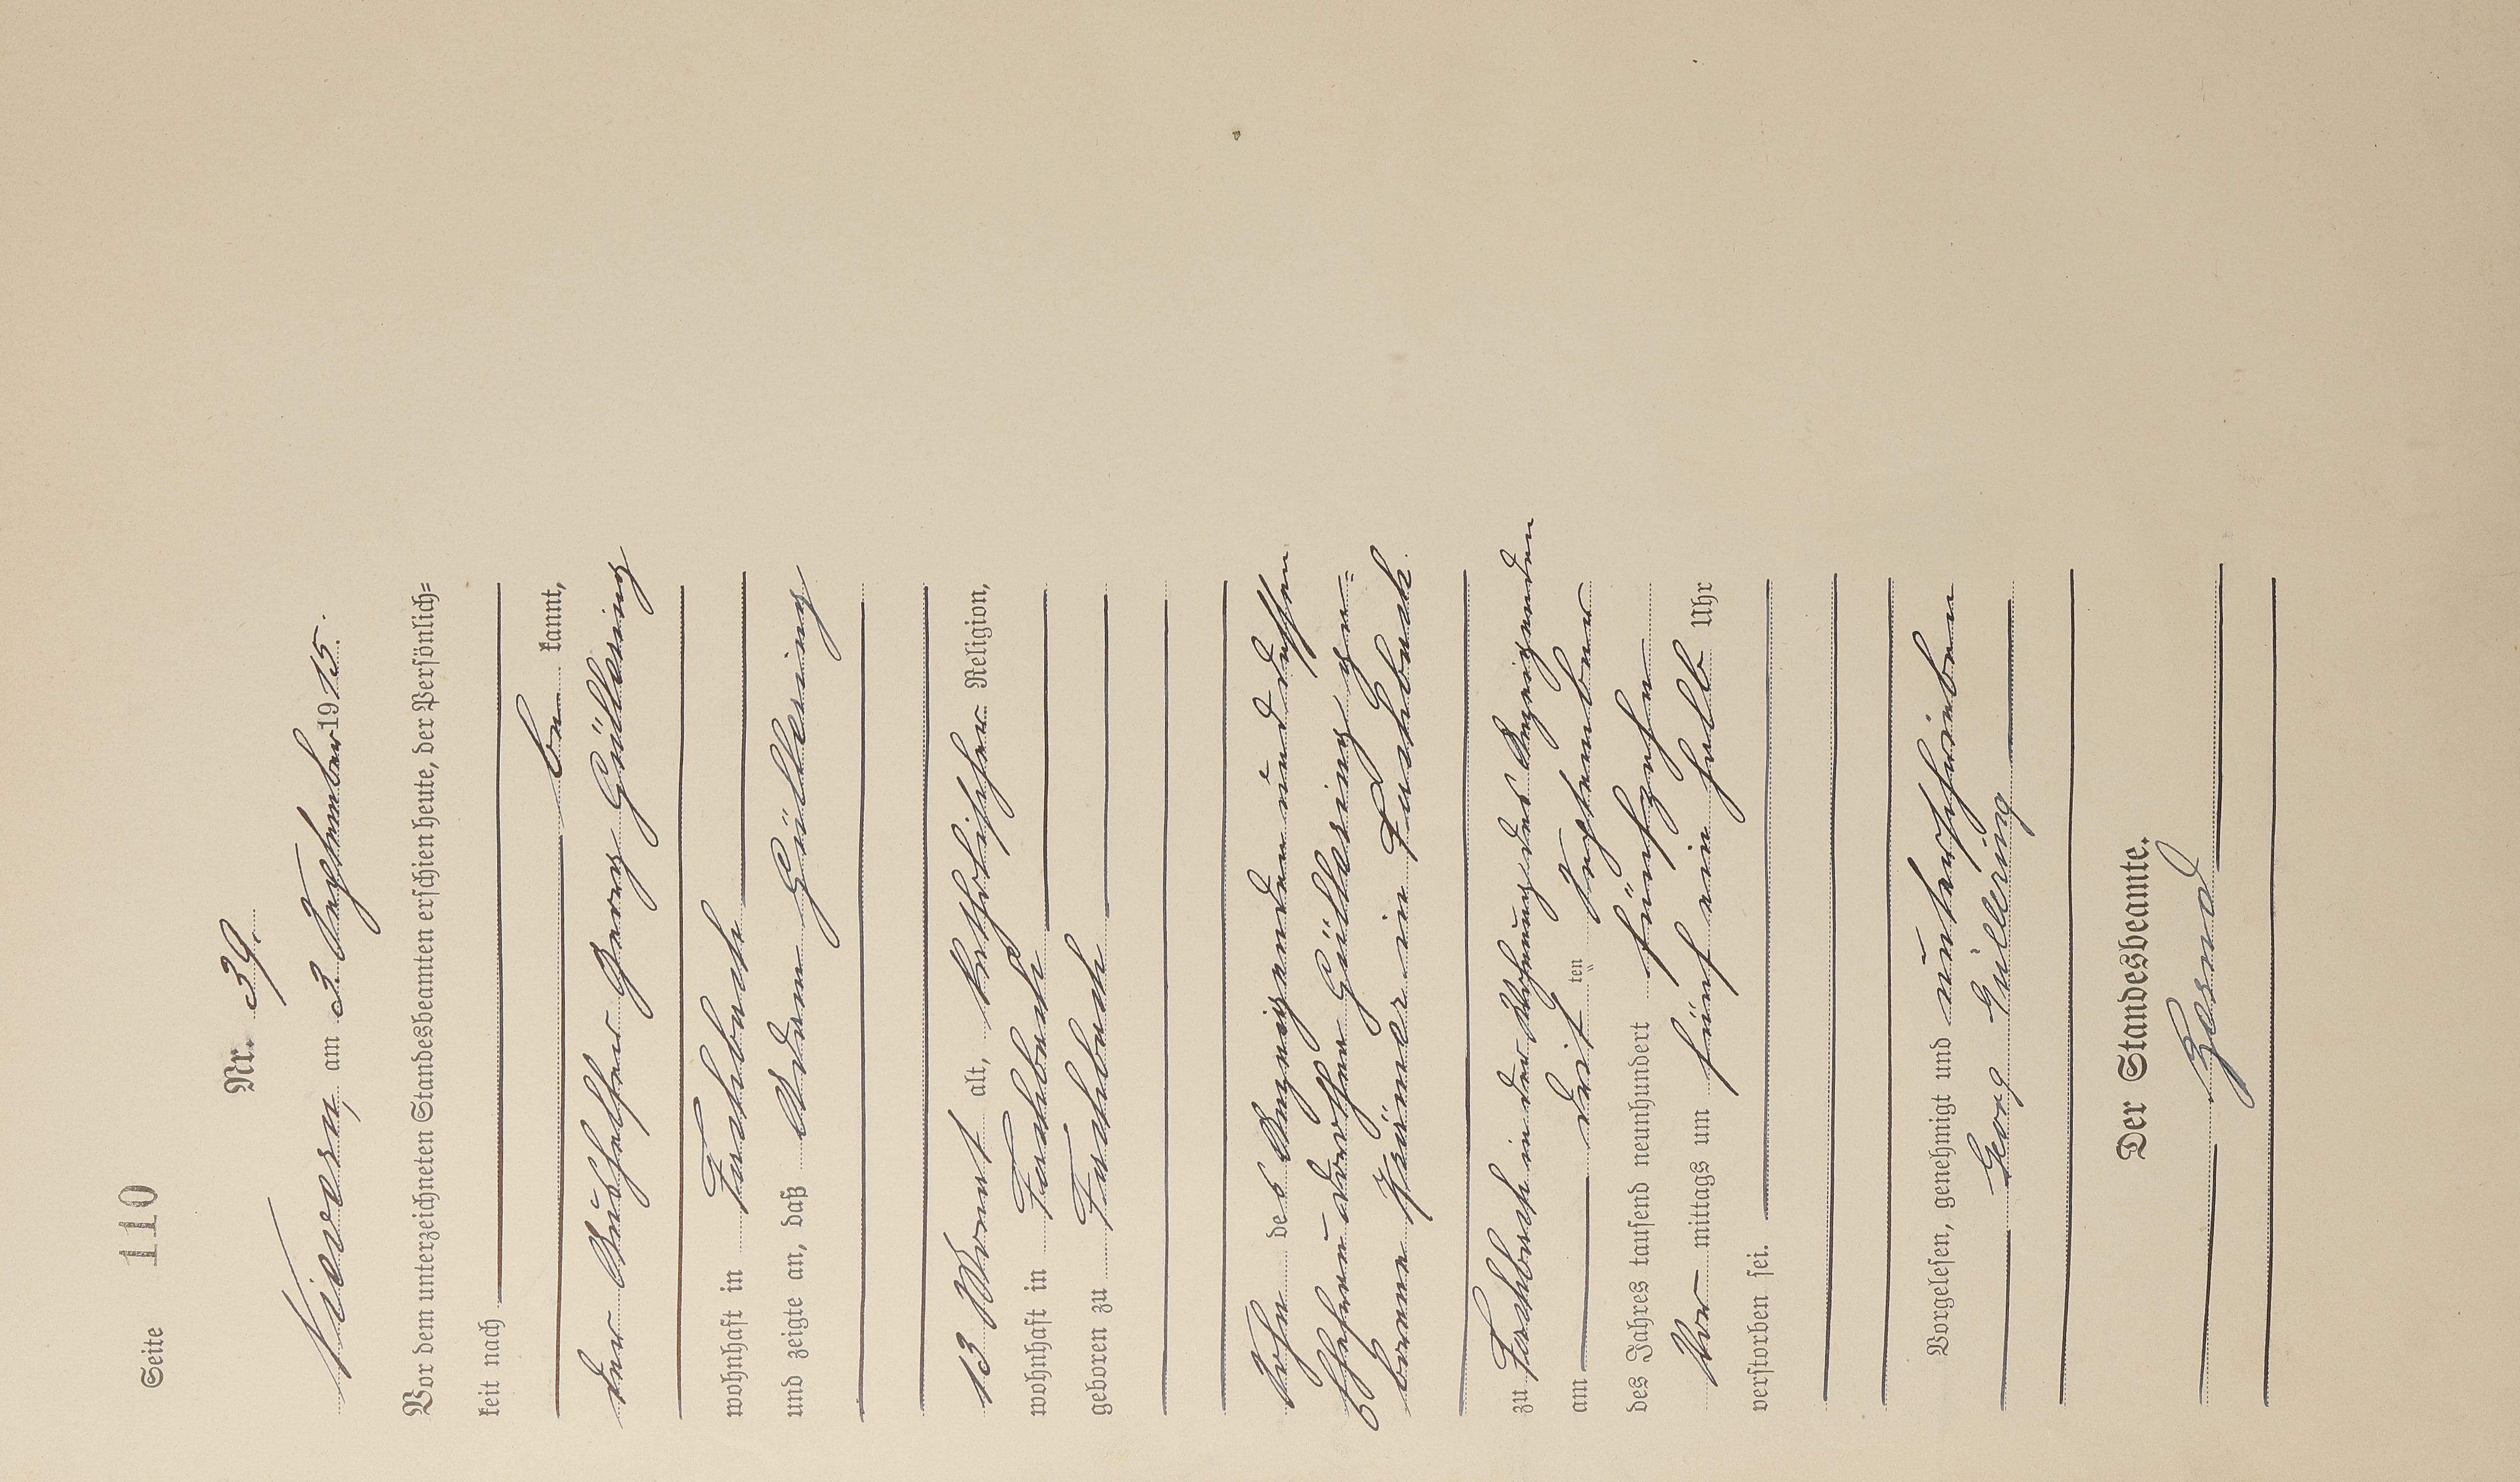 Seite 110
Nr. 39.
Nievern, am 3. September 1915.
Vor dem unterzeichneten Standesbeamten erschien heute, der Persönlich=
keit nach
be kannt,
der Bürohelfer Georg Güllering
wohnhaft in Fachbach
und zeigte an, daß Adam Güllering
13 Monat alt, katholischer Religion,
wohnhaft in Fachbach
geboren zu Fachbach
Sohn des Anzeigenden und dessen
Ehefrau Dorothea Güllering ge=
borene in Fachbach
zu Fachbach in der Wohnung des Anzeigenden
am drit ten September
des Jahres tausend neunhundert fünfzehn
Vor mittags um fünf ein halb Uhr
verstorben sei.
Vorgelesen, genehmigt und unterschrieben
Georg Güllering
Der Standesbeamte.